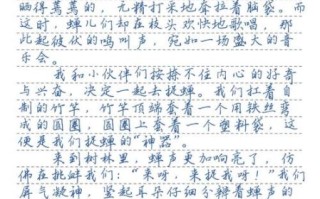 晒得蔫蔫的，无精打采地耷拉着脑袋。而
这时，蝉儿们却在枝头欢快地歌唱，那
此起彼伏的鸣叫声，宛如一场盛大的音
乐会。
我和小伙伴们按捺不住内心的好奇
与兴奋，决定一起去捉蝉。我们扛着自
制的竹竿，竹竿顶端套着一个用铁丝弯
成的圆圈，圆圈上套着一个塑料袋，这
便是我们捉蝉的“神器”。
来到树林里，蝉声更加响亮了，仿
佛在挑衅我们：“来呀，来捉我呀！”我们
屏气凝神，竖起耳朵仔细分辨着蝉声的